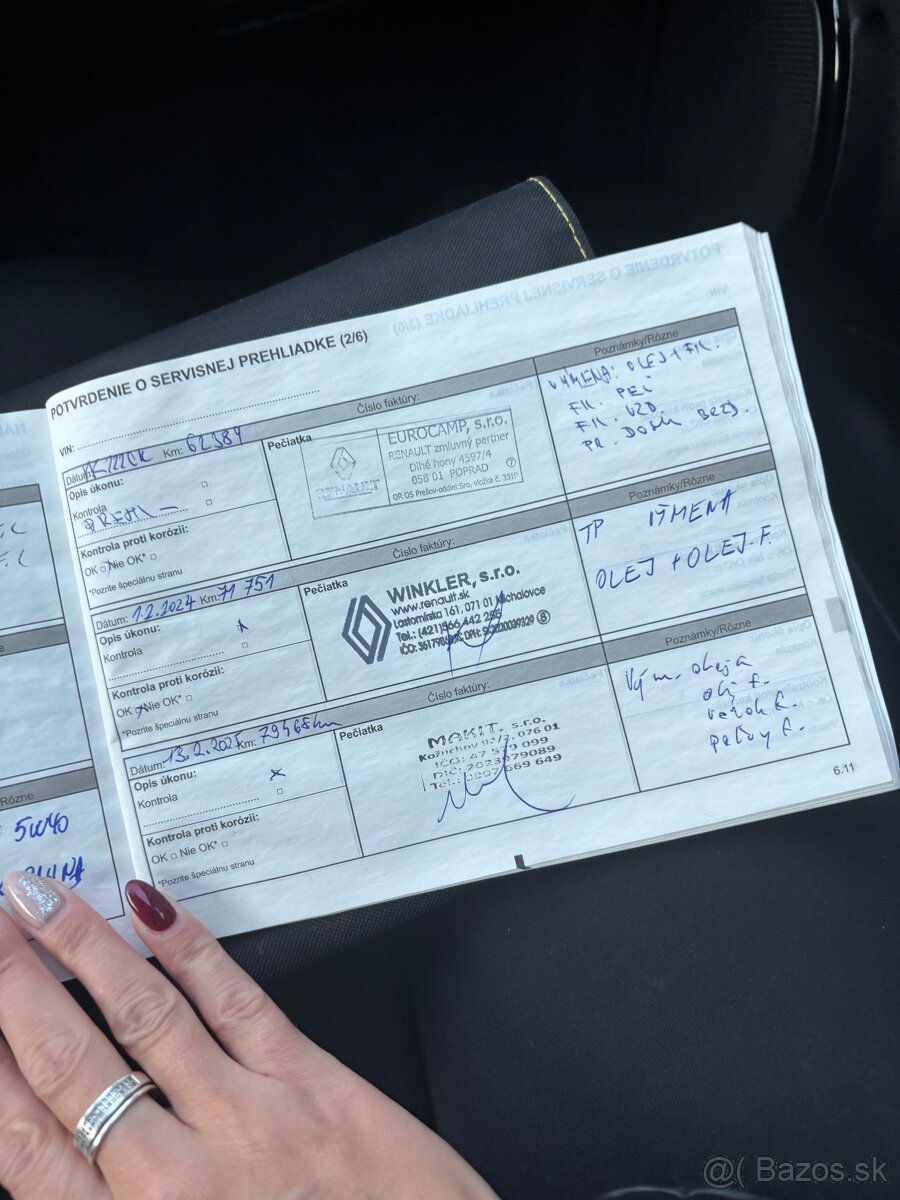 POTVRDENIE O SERVISNEJ PREHLIADKE (2/6)
VIN:
Dátum: Km: 62384
Číslo faktúry:
Poznámky/Rôzne
Opis úkonu:
Kontrola
Kontrola proti korózii:
OK Nie OK*
*Pozrite špeciálnu stranu
Pečiatka
RENAULT
EUROCAMP, s.r.o.
RENAULT zmluvný partner
Dlhé hony 4597/4
058 01 POPRAD
OR OS Prešov-oddiel:Sro, vložka č. 331P
VÝMENA: OLEJ + FIL.
FIL. PEĽ
FIL. VZD.
Dátum: 1.2.2024 Km: 71 751
Číslo faktúry:
Poznámky/Rôzne
Opis úkonu:
Kontrola
Kontrola proti korózii:
OK Nie OK*
*Pozrite špeciálnu stranu
Pečiatka
WINKLER, s.r.o.
www.renault.sk
Lastomírska 161, 071 01 Michalovce
Tel.: (421)566 442 255
TP VÝMENA
OLEJ + OLEJ. F.
Dátum: 13.2.2025 Km: 79468km
Číslo faktúry:
Poznámky/Rôzne
Opis úkonu:
Kontrola
Kontrola proti korózii:
OK Nie OK*
*Pozrite špeciálnu stranu
Pečiatka
MAKIT, s.r.o.
Kožuchov 076 01
IČO: 47 579 099
DIČ: 2023979089
Tel.: 0907 669 649
Vým. oleja
olj f.
peľový f.
6.11
/Rôzne
5W40
@( Bazos.sk